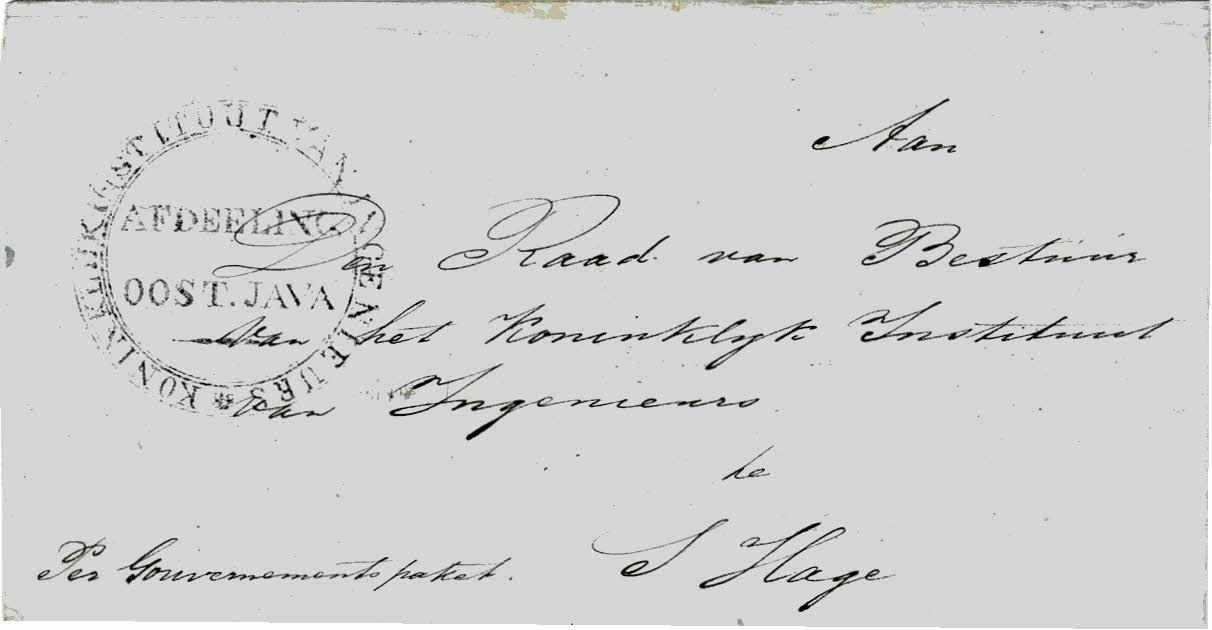 KONINKLIJK INSTITUUT VAN INGENIEURS
AFDEELING
OOST.JAVA
Aan
Den Raad van Bestuur
van het Koninklyk Instituut
van Ingenieurs
te
S Hage
Per Gouvernements paket.